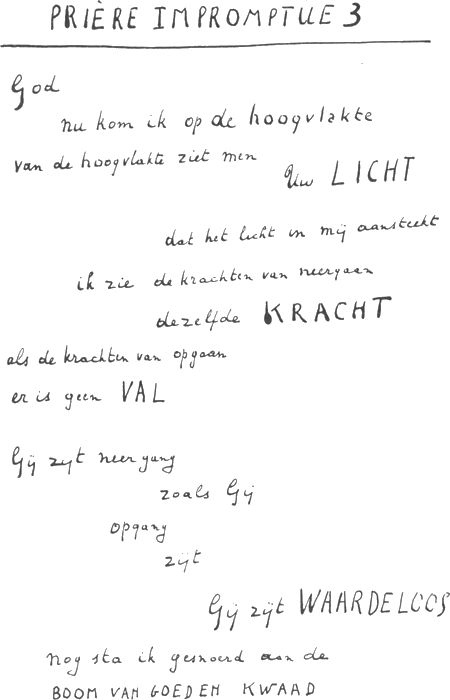 PRIÈRE IMPROMPTUE 3
God
nu kom ik op de hoogvlakte
van de hoogvlakte ziet men
Uw LICHT
dat het licht in mij aansteekt
ik zie de krachten van neergaan
dezelfde KRACHT
als de krachten van opgaan
er is geen VAL
Gij zijt neergang
zoals Gij
opgang
zijt
Gij zijt WAARDELOOS
nog sta ik gesnoerd aan de
BOOM VAN GOED EN KWAAD